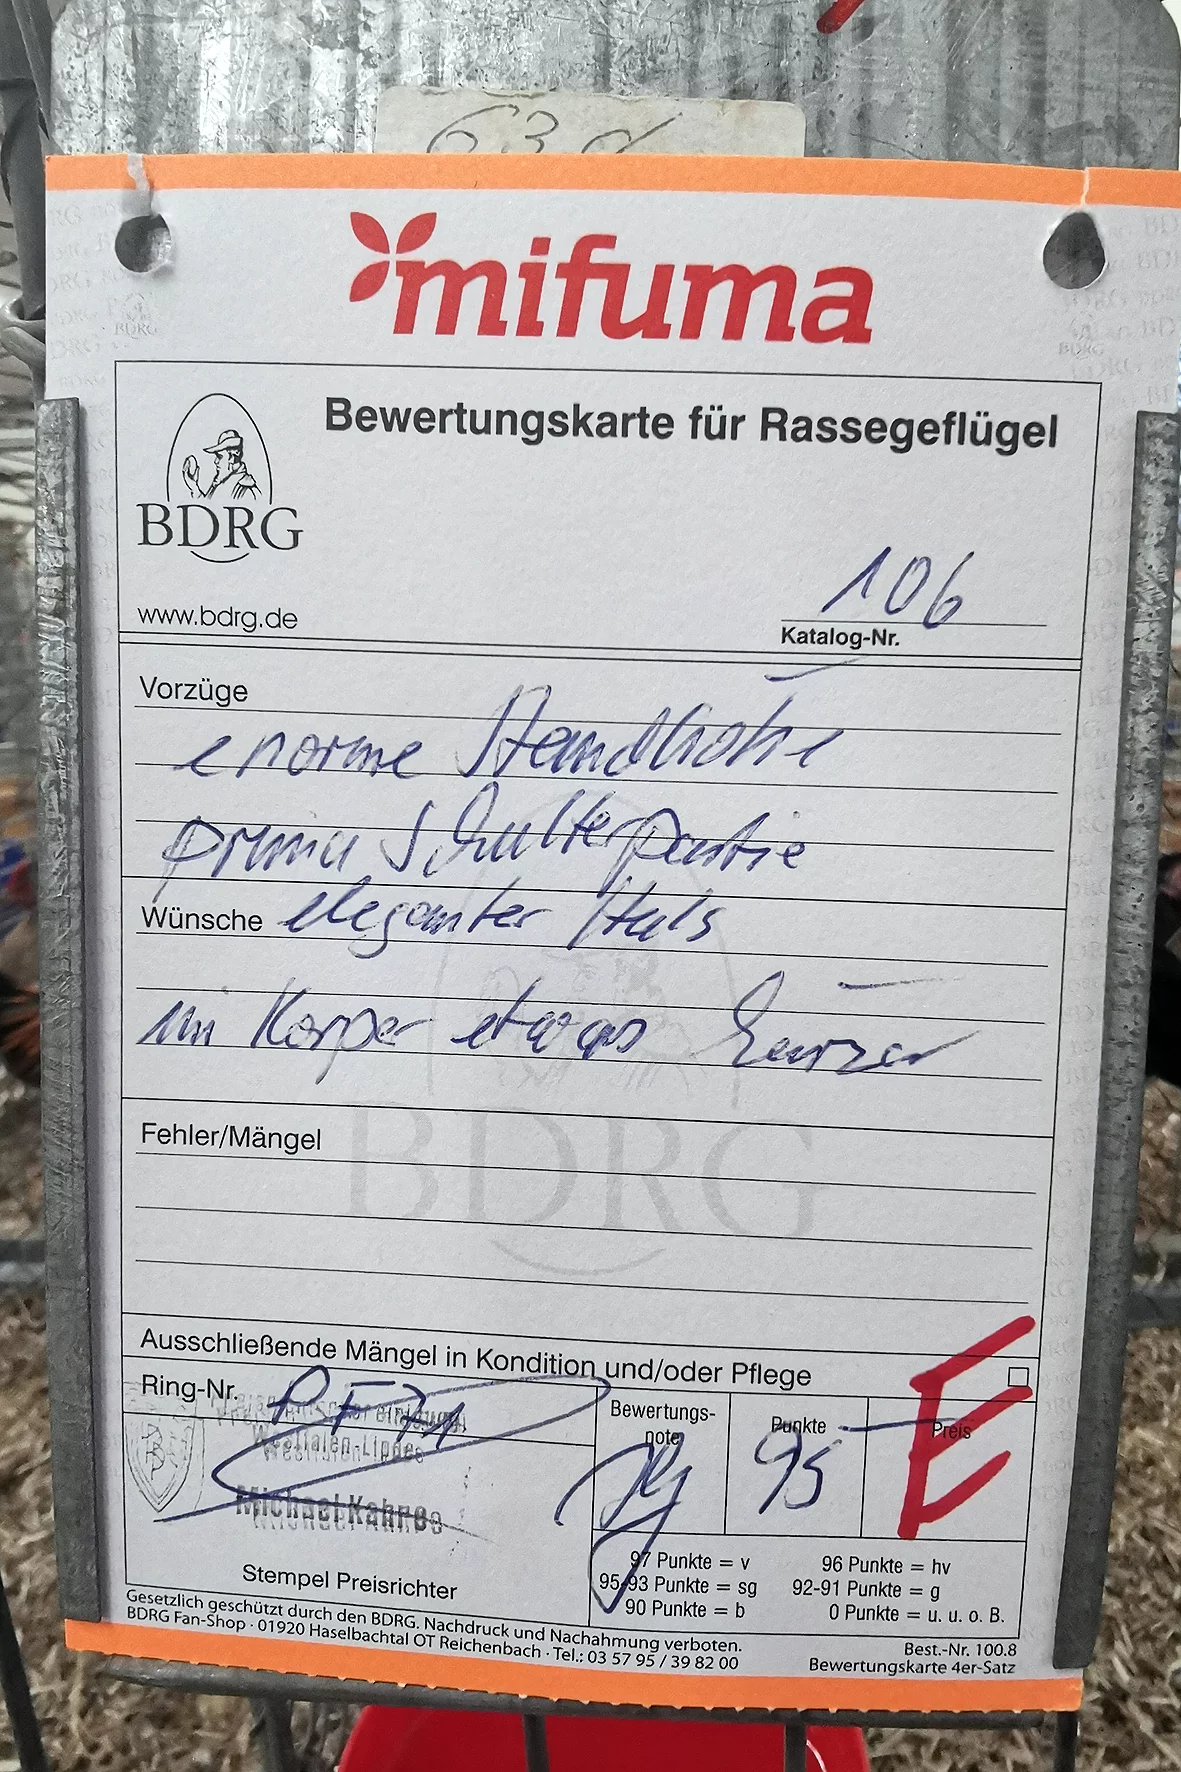 63 d
mifuma
Bewertungskarte für Rassegeflügel
BDRG
www.bdrg.de
106
Katalog-Nr.
Vorzüge
enorme Standhöhe
prima Schulterpartie
Wünsche eleganter Hals
im Körper etwas kürzer
BDRG
Fehler/Mängel
Ausschließende Mängel in Kondition und/oder Pflege
Ring-Nr.
Westfalen-Lippe
Michael Kahre
Stempel Preisrichter
Bewertungs-
note
sg
Punkte
95
Preis
E
97 Punkte = v
96 Punkte = hv
95-93 Punkte = sg
92-91 Punkte = g
90 Punkte = b
0 Punkte = u. u. o. B.
Gesetzlich geschützt durch den BDRG. Nachdruck und Nachahmung verboten.
BDRG Fan-Shop · 01920 Haselbachtal OT Reichenbach · Tel.: 03 57 95 / 39 82 00
Best.-Nr. 100.8
Bewertungskarte 4er-Satz